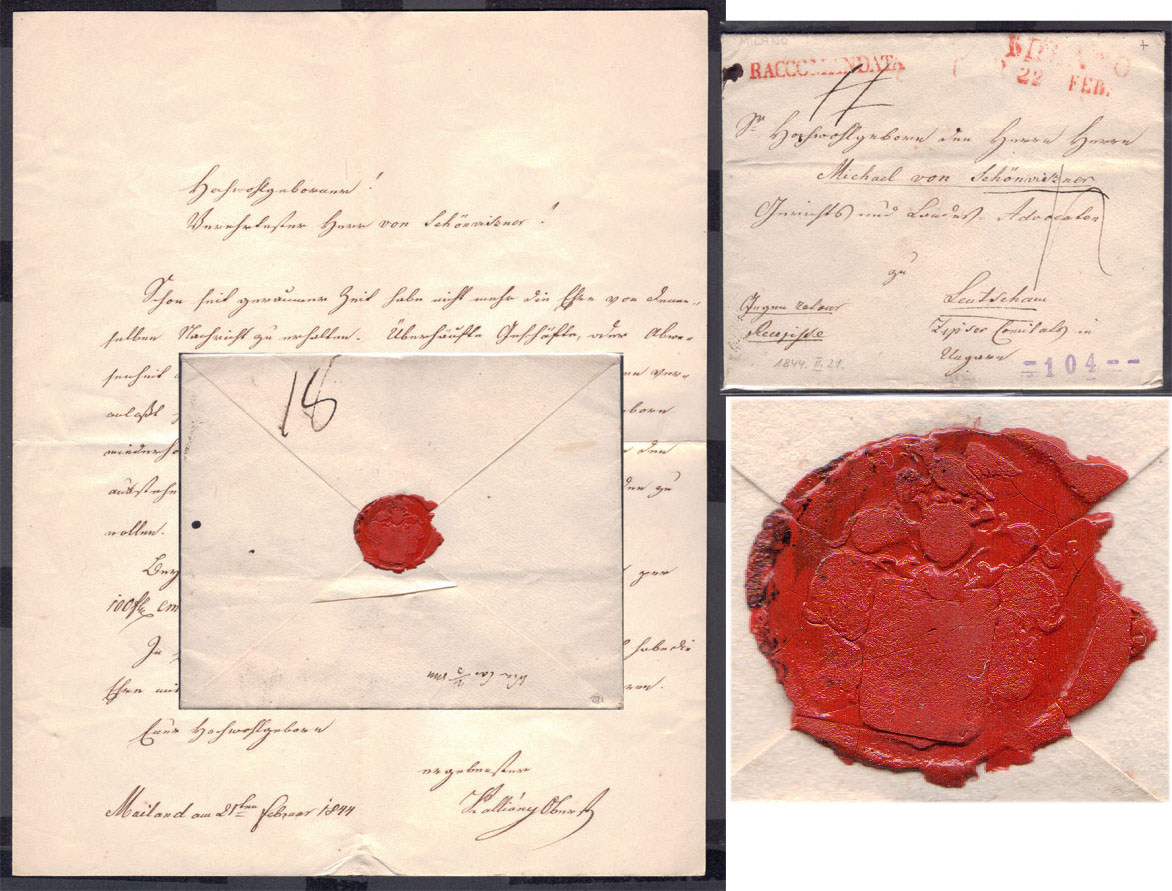 Hochwohlgeborner!
Verehrtester Herr von Schönvisner!
Schon seit geraumer Zeit habe nicht mehr die Ehre von denen-
selben Nachricht zu erhalten. Überhäufte Geschäfte, oder Abwe-
senheit
ver-
anlaßt
born
wiederho
den
ausstehe
den zu
wollen.
Bey
per
100 f
In
habe die
Ehre mit
Euer Hochwohlgeborn
ergebenster
Szallióny Oberst
Mailand am 21ten Februar 1844
18
MILANO
RACCOMANDATA
MILANO
22 FEB.
Sr Hochwohlgeborn dem Herrn Herrn
Michael von Schönviszner
Gerichts und Landes-Advocaten
zu
Leutschau
Zipser Comitats in
Ungarn
Gegen retour
Recepisse
1844. II. 21
=104==